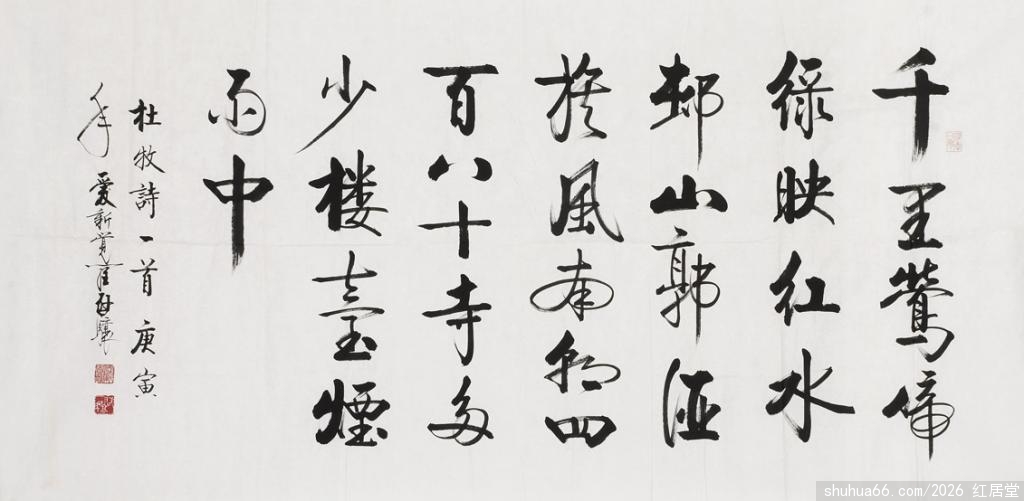 千里鶯啼
緑映红水
邨山郭酒
旗風南朝四
百八十寺多
少楼臺煙
雨中
杜牧詩一首庚寅
年 愛新覚羅啟驤
shuhua66.com/2026 红居堂